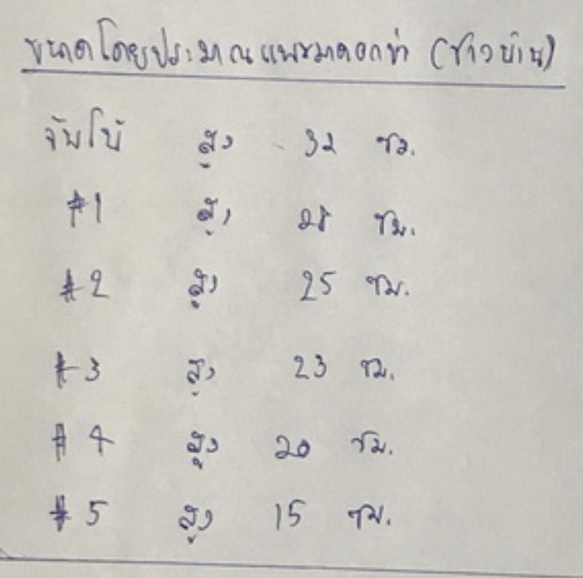 ขนาดโดยประมาณแพะมาดอกขำ (ชาวบ้าน)
จัมโบ้ สูง 32 ซม.
#1 สูง 28 ซม.
#2 สูง 25 ซม.
#3 สูง 23 ซม.
#4 สูง 20 ซม.
#5 สูง 15 ซม.